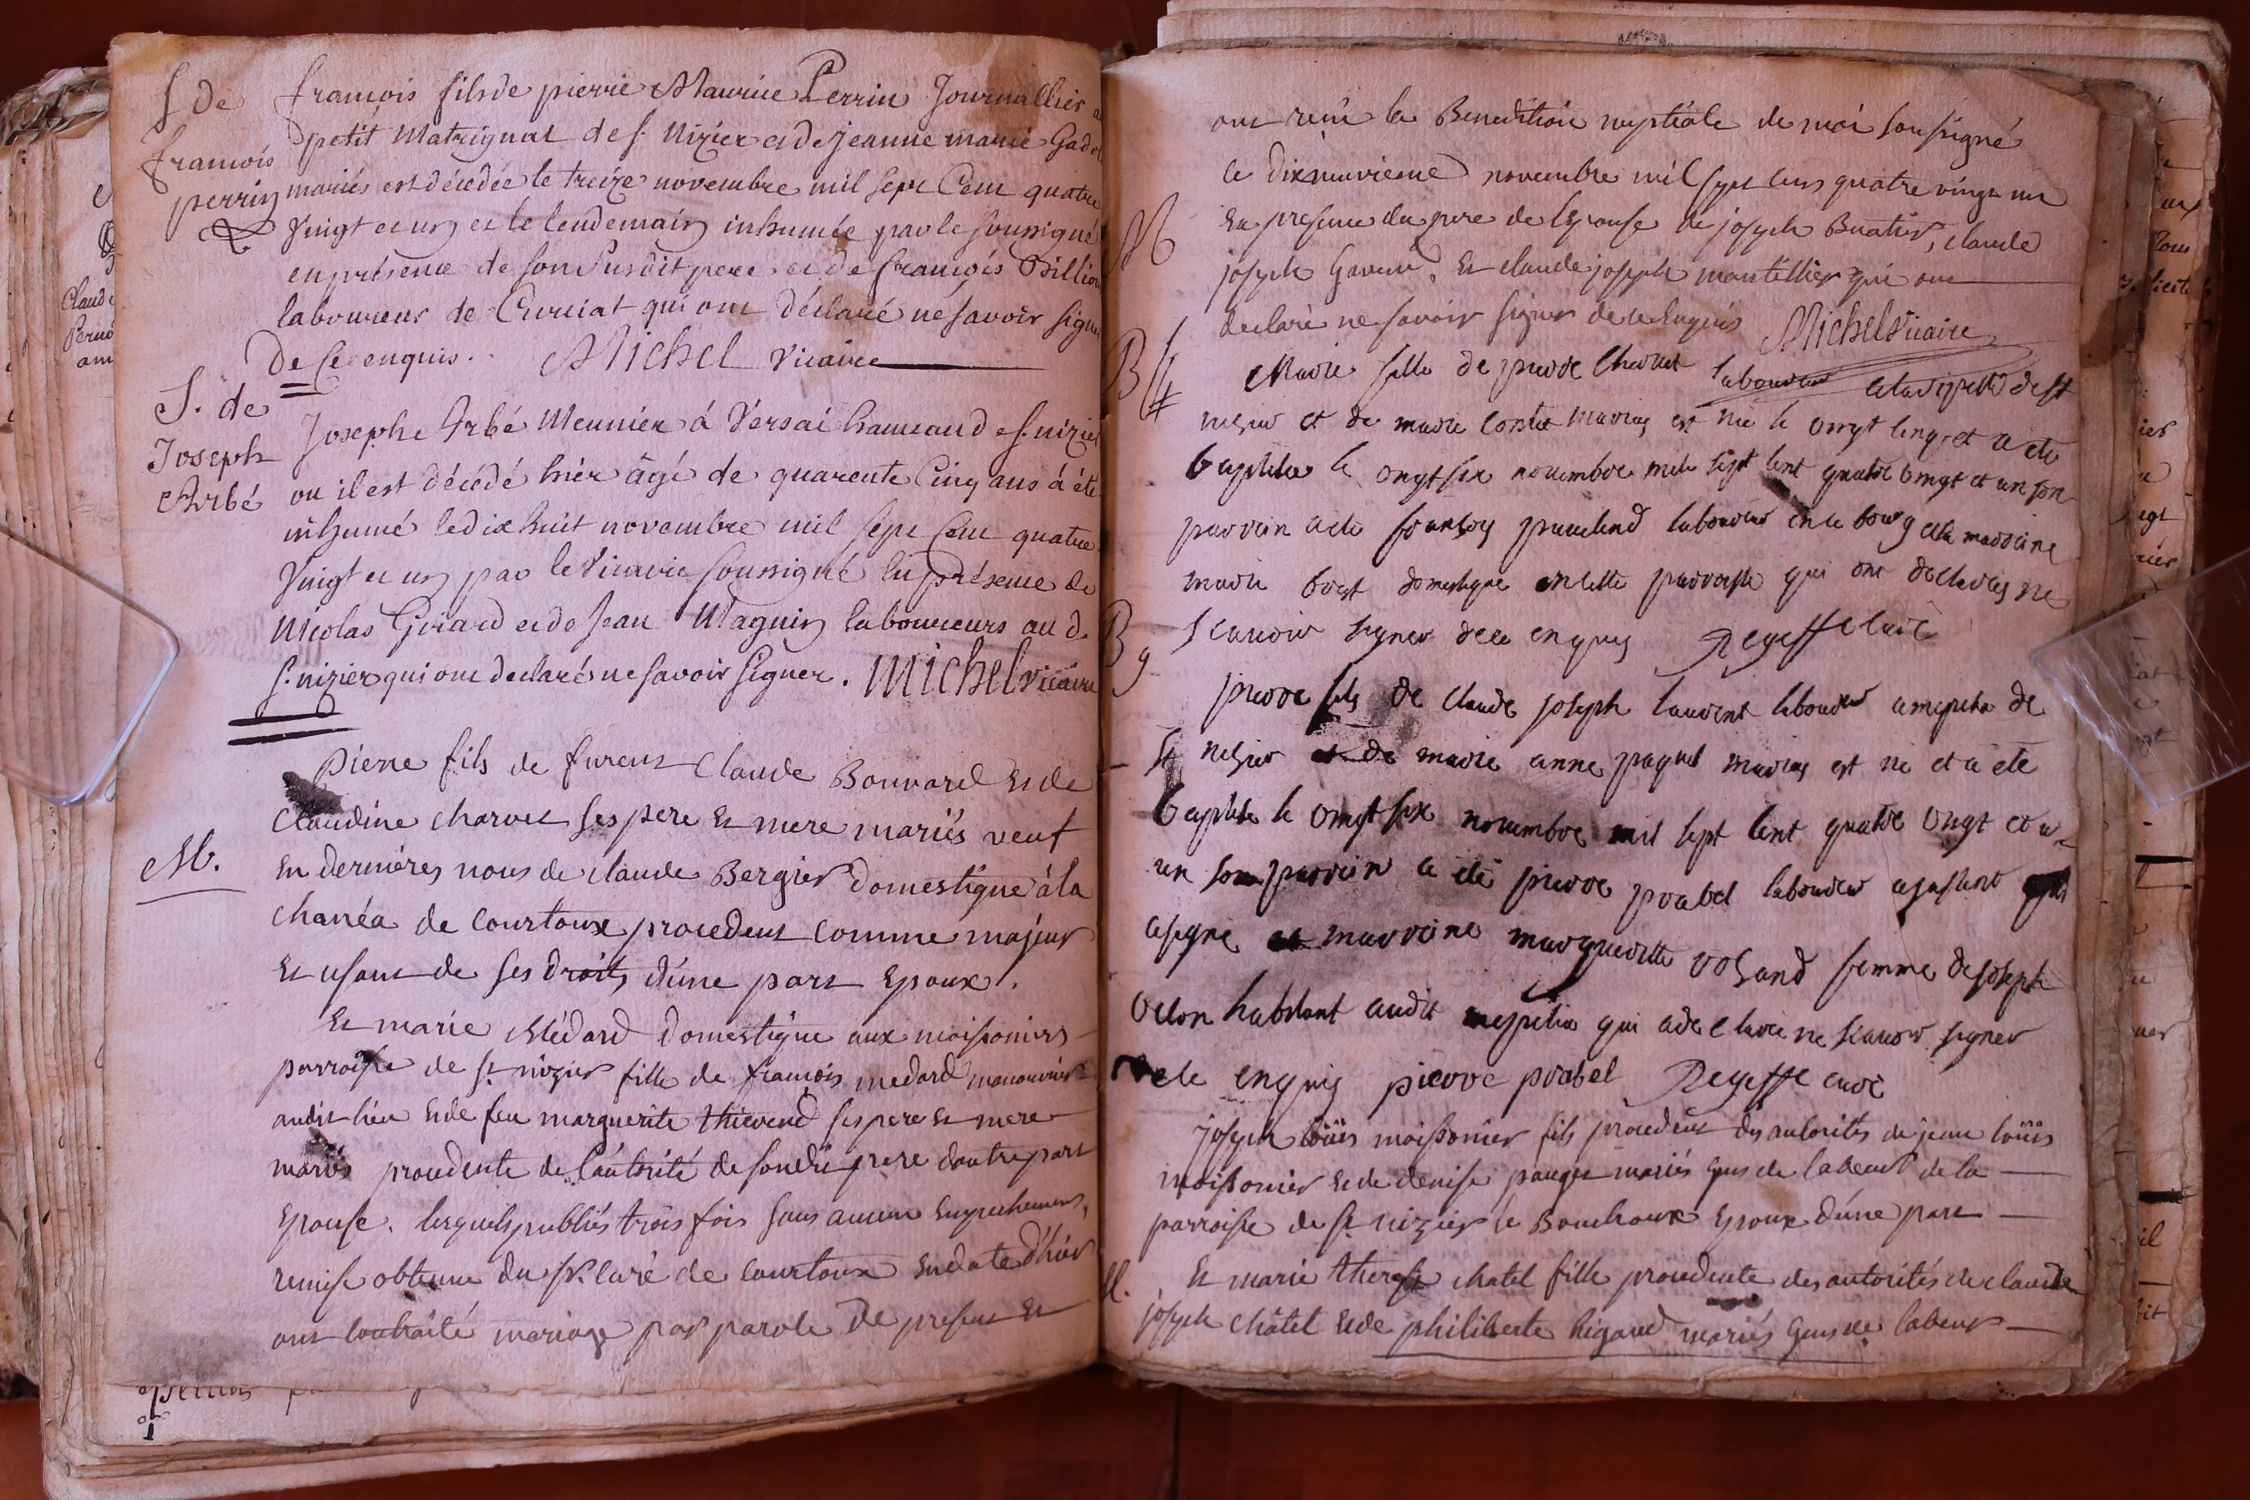 S. de
françois
perrin
françois fils de pierre Maurice Perrin Journallier
petit Matrignat de s. Nizier et de jeanne marie Gad
mariés est décedée le treize novembre mil sept Cent quatre
Vingt et un et le lendemain inhumée par le soussigné
en présence de son Susdit pere et de françois Billion
laboureur de Curciat qui ont déclaré ne savoir signer
De ce enquis. Michel Vicaire
S. de
Joseph
Arbé
Joseph Arbé Meunier à Versai hameau de s. nizier
ou il est décédé hier âgé de quarente Cinq ans à été
inhumé le dix huit novembre mil sept Cent quatre
Vingt et un par le Vicaire soussigné En présence de
Nicolas Girard et de Jean Maguin laboureurs au d.
s. nizier qui ont declarés ne savoir signer. Michel Vicaire
M.
Pierre fils de furent Claude Bouvard et de
Claudine charvet ses pere et mere mariés veuf
En dernières nous de claude Bergier Domestique à la
chanéa de courtoux procedent comme majeur
Et usant de ses droits d'une part Epoux.
Et marie Médard Domestique aux moissoniers
parroisse de st nizier fille de françois medard manouvrier
audit lieu Et de feu marguerite thievend ses pere et mere
mariés procedente de l'autorité de sondit pere d'autre part
Epouse. lesquels publiés trois fois sans aucun Empechement,
remise obtenue du sr. curé de courtoux En date d'hier
ont contraité mariage par parole De present Et
M
ont reçu la Benedition nuptiale de moi soussigné
ce dixneuvieme novembre mil sept cens quatre vingt un
En presence du pere de l'Epouse de joseph Buatier, claude
joseph Gavand, Et claude joseph mantellier qui ont
declaré ne savoir signer de ce Enquis Michel Vicaire
B
Marie fille de pierre Charvet laboureur de st
nesier et de marie mariés est née le vingt cinq et a ete
baptisée le vingt six novembre mil sept cent quatre vingt et un son
parrain a ete françois laboureur en ce bourg et la marraine
marie domestique en cette parroisse qui ont declarés ne
scavoir signer de ce enquis Regeffe curé
B g
pierre fils de claude joseph laurent laboureur a mepilia de
st nesier et de marie anne paquet mariés est né et a ete
baptisé le vingt six novembre mil sept cent quatre vingt et un
un son parrain a ete pierre prabel laboureur
a signé et marraine marguerite voland femme de joseph
velon habitant audit mepilia qui a declaré ne scavoir signer
de ce enquis pierre prabel Regeffe curé
M.
joseph loüis moissonier fils procedent des autorités de jean loüis
moissonier Et de denise pauget mariés gens de labeur de la
parroisse de st. nizier le Bouchoux Epoux d'une part
Et marie therese chatel fille procedente des autorités de claude
joseph châtel Et de philiberte Rigaud mariés gens de labeur